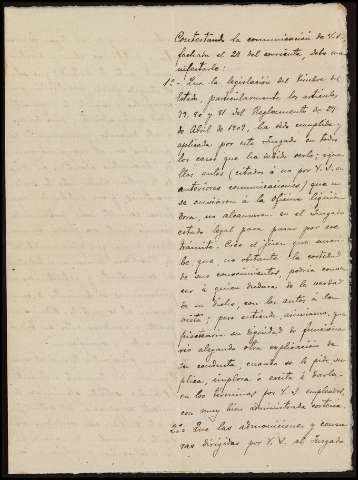 Contestando la comunicación de V.S.
fechada el 28 del corriente, debo ma-
nifestarle:
1º- Que la legislación del Timbre del
Estado, particularmente los artículos
79, 80 y 81 del Reglamento de 29
de Abril de 1909, ha sido cumplida y
aplicada por este Juzgado en todos
los casos que ha debido serlo; aque-
llos autos (citados ó no por V.S. en
anteriores comunicaciones) que no
se enviaron á la oficina liquida-
dora, no alcanzaron en el Juzgado
estado legal para pasar por ese
trámite. Cree el Juez que suscri-
be que, no obstante la cortedad
de sus conocimientos, podría conven-
cer á quien dudara de la verdad
de su dicho, con los autos á la
vista; pero entiende, asimismo, que
pisotearía su dignidad de funciona-
rio alegando otra explicación de
su conducta, cuando se le pide, su-
plica, implora ó excita á darla
en los términos por V.S. empleados,
con muy bien administrada cortesía.
2º- Que las admoniciones y censu-
ras dirigidas por V.S. al Juzgado